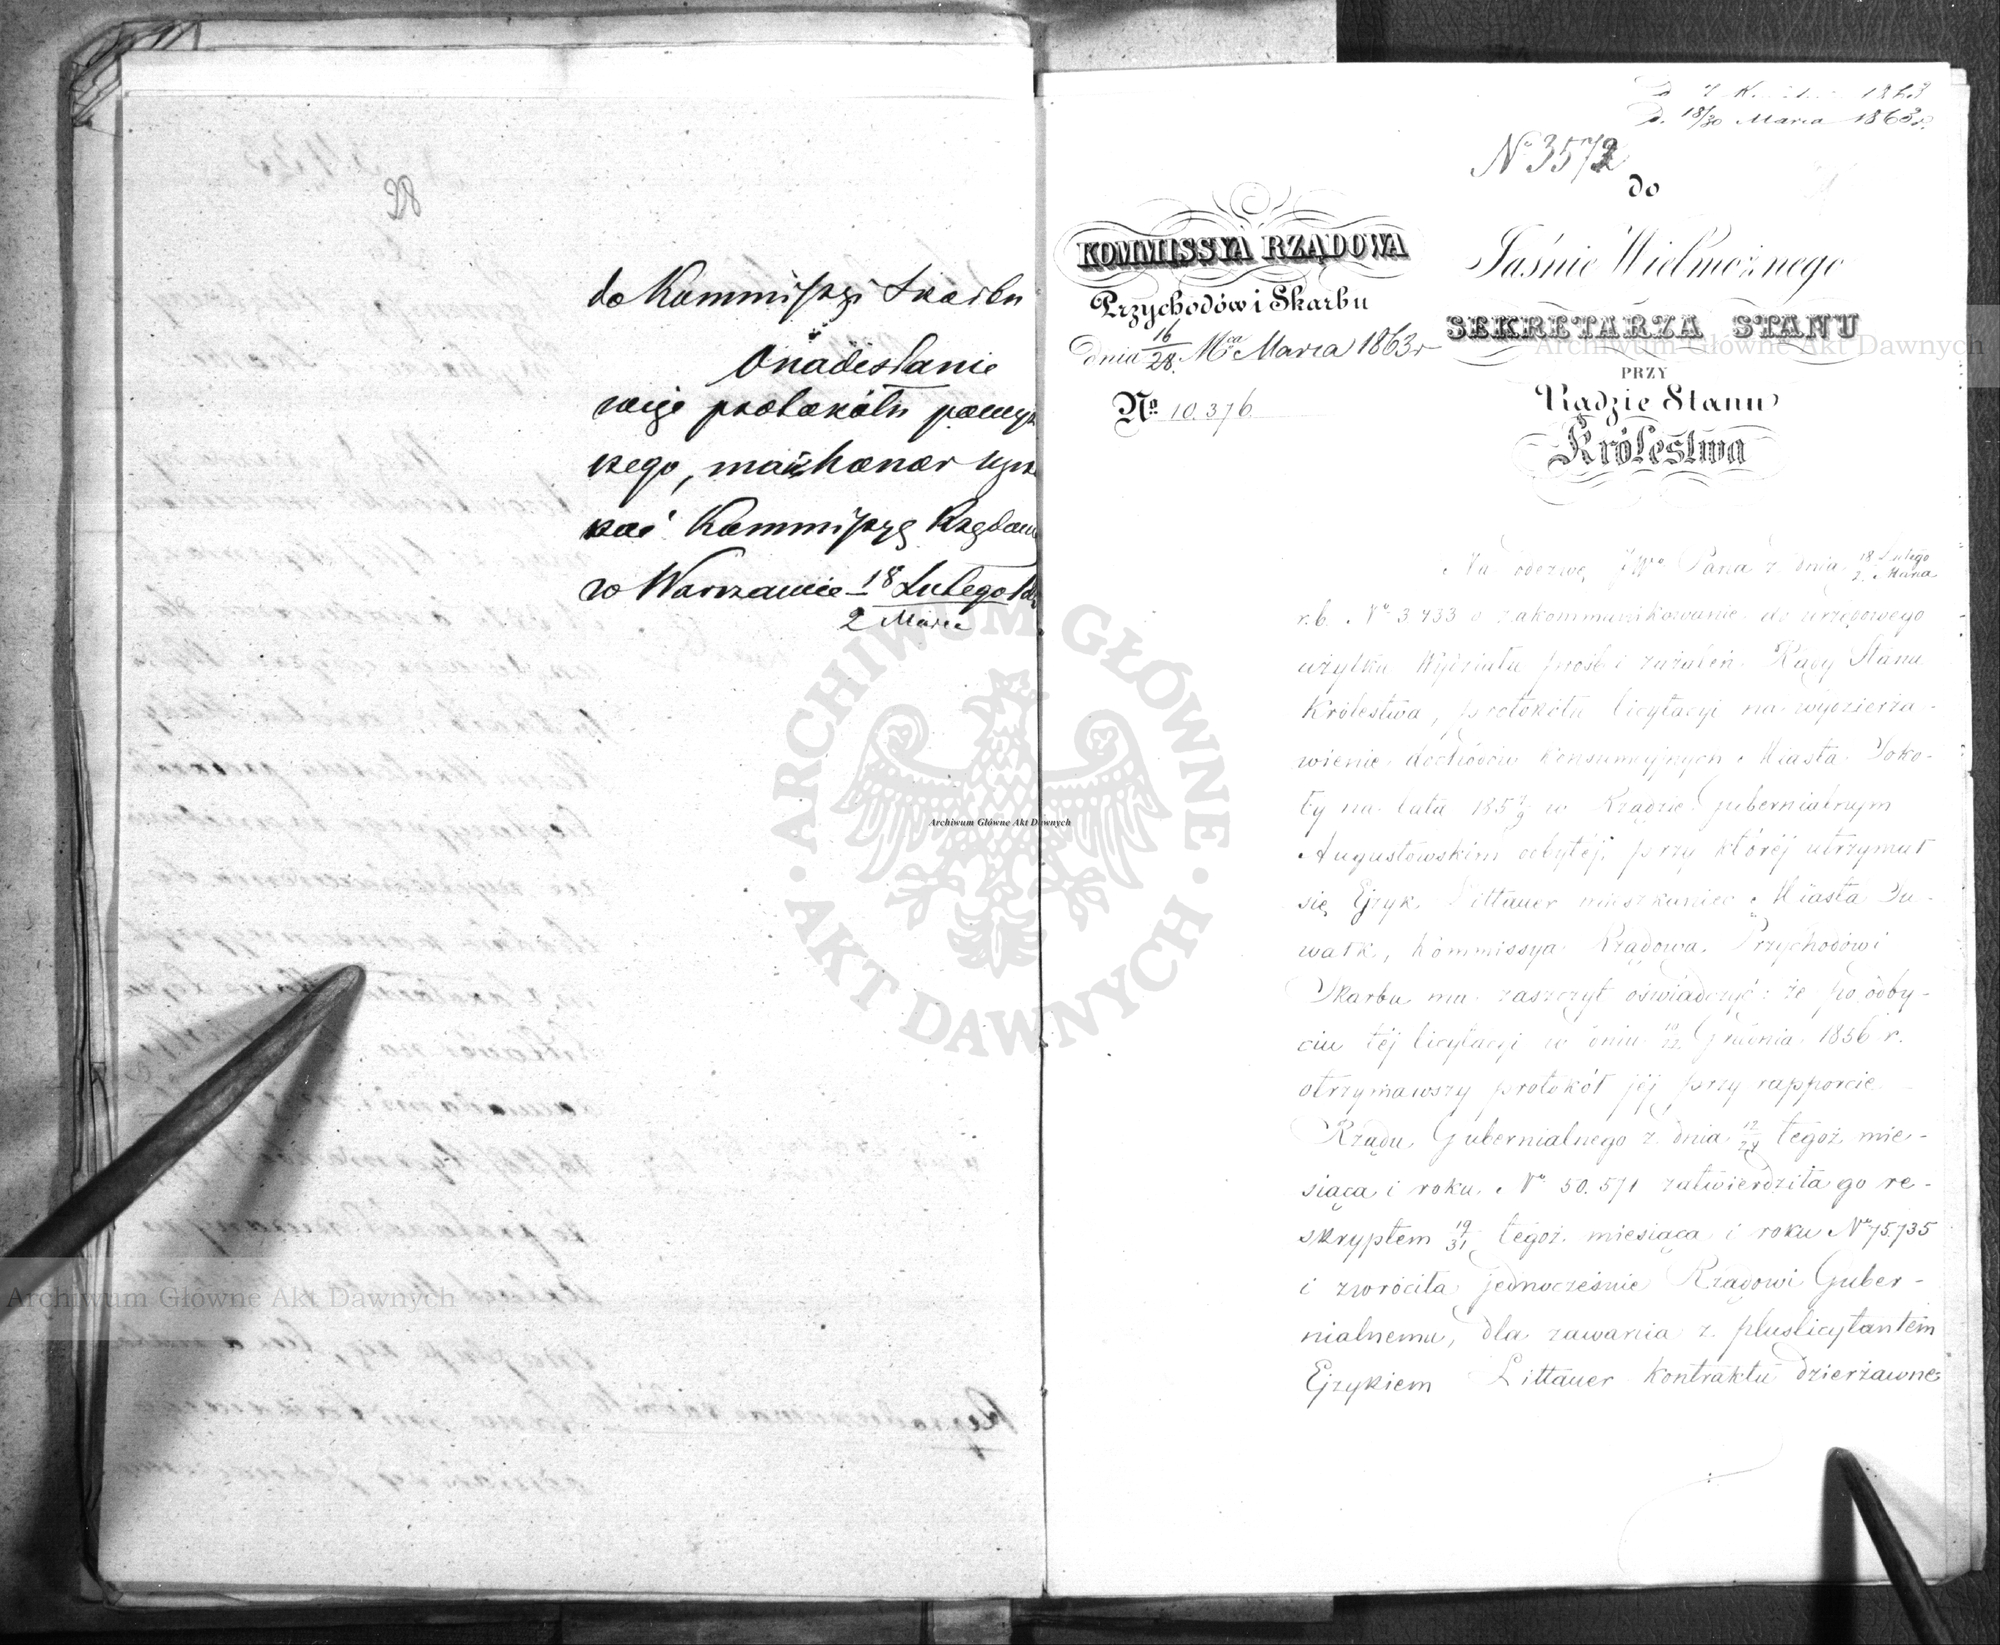 28
do Kommissyi Skarbu
O nadesłanie
więc protokółu powyż
szego, ma honor wez
wać Kommissyę Rządow
w Warszawie 18 Lutego
2 Marca
1863
D. 18/30 Marca 1863 r.
No 3572
do
KOMMISSYA RZĄDOWA
Przychodów i Skarbu
dnia 16/28 Mca Marca 1863 r
No 10.376.
Jaśnie Wielmożnego
SEKRETARZA STANU
PRZY
Radzie Stanu
Królestwa
Na odezwę JWgo Pana z dnia 18 Lutego
2 Marca
r.b. No 3433 o zakommunikowanie do urzędowego
użytku Wydziału próśb i zażaleń Rady Stanu
Królestwa, protokółu licytacyi na wydzierża-
wienie dochodów konsumcyjnych Miasta Soko-
ły na lata 1857/9 w Rządzie Gubernialnym
Augustowskim odbytéj, przy któréj utrzymał
się Ejzyk Littauer mieszkaniec Miasta Su-
wałk, Kommissya Rządowa Przychodów i
Skarbu ma zaszczyt oświadczyć: że po odby-
ciu téj licytacyi w dniu 10/22 Grudnia 1856 r.
otrzymawszy protokół jéj przy rapporcie
Rządu Gubernialnego z dnia 12/24 tegoż mie-
siąca i roku No 50.571 zatwierdziła go re-
skryptem 19/31 tegoż miesiąca i roku No 75.735
i zwróciła jednocześnie Rządowi Guber-
nialnemu, dla zawarcia z pluslicytantem
Ejzykiem Littauer kontraktu dzierżawne
Archiwum Główne Akt Dawnych
Archiwum Główne Akt Dawnych
Archiwum Główne Akt Dawnych
ARCHIWUM GŁÓWNE AKT DAWNYCH